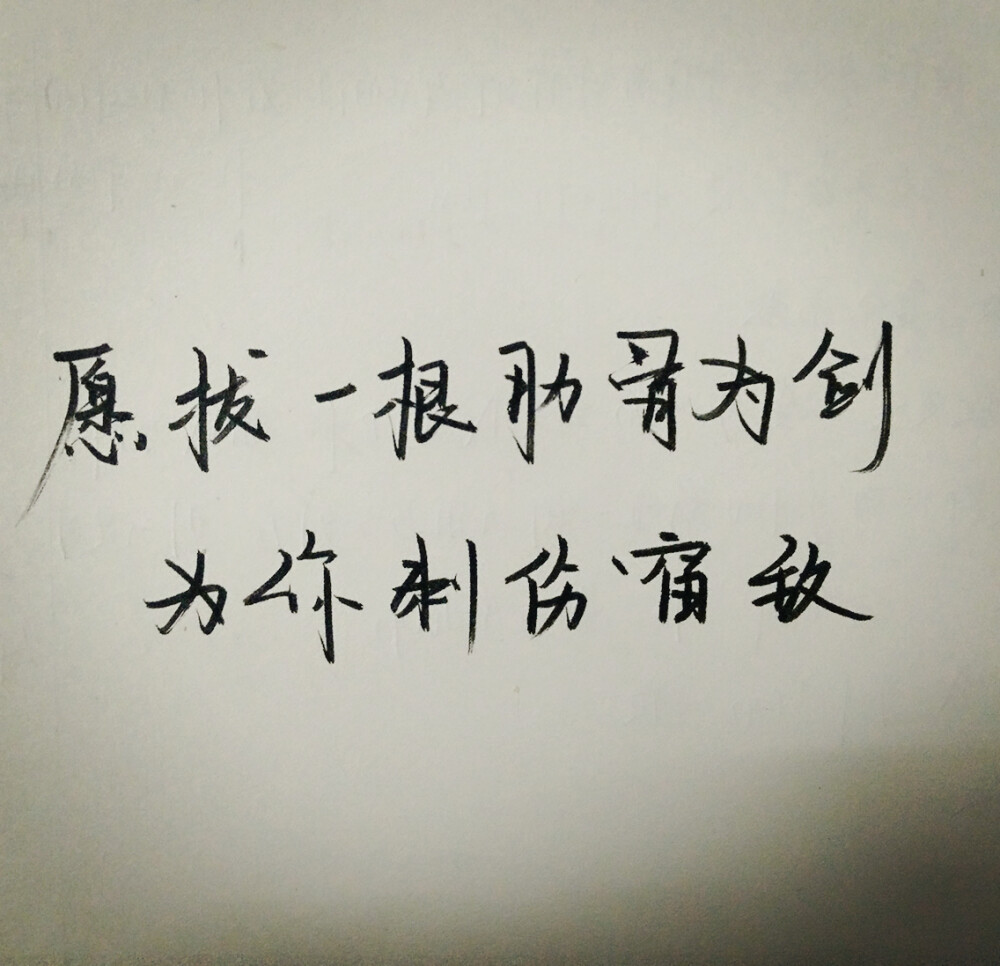 愿拔一根肋骨为剑
为你刺伤宿敌